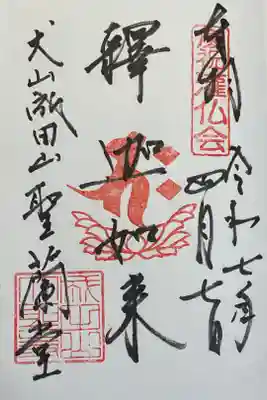 奉拝
灌仏会
令和七年
四月七日
釋迦如来
犬山成田山聖蘭堂